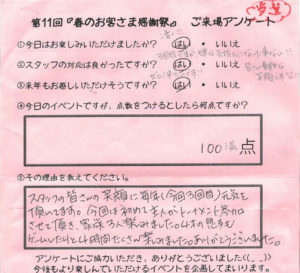 第11回『春のお客さま感謝祭』 ご来場アンケート
①今日はお楽しみいただけましたか? はい ・ いいえ
②スタッフの対応は良かったですか? はい ・ いいえ
③来年もお越しいただけそうですか? はい ・ いいえ
④今日のイベントですが、点数をつけるとしたら何点ですか?
100 点
⑤その理由を教えてください。
スタッフの皆さんの笑顔に毎年(今回3回目)元気を
頂いてます。今回は初めて主人がトーナメント参加
させて頂き、家族3人楽しみました。
4時間たくさん楽しみました。ありがとうございました。
アンケートにご協力いただき、ありがとうございました((_ _))
今後もより楽しんでいただけるイベントを企画してまいります。